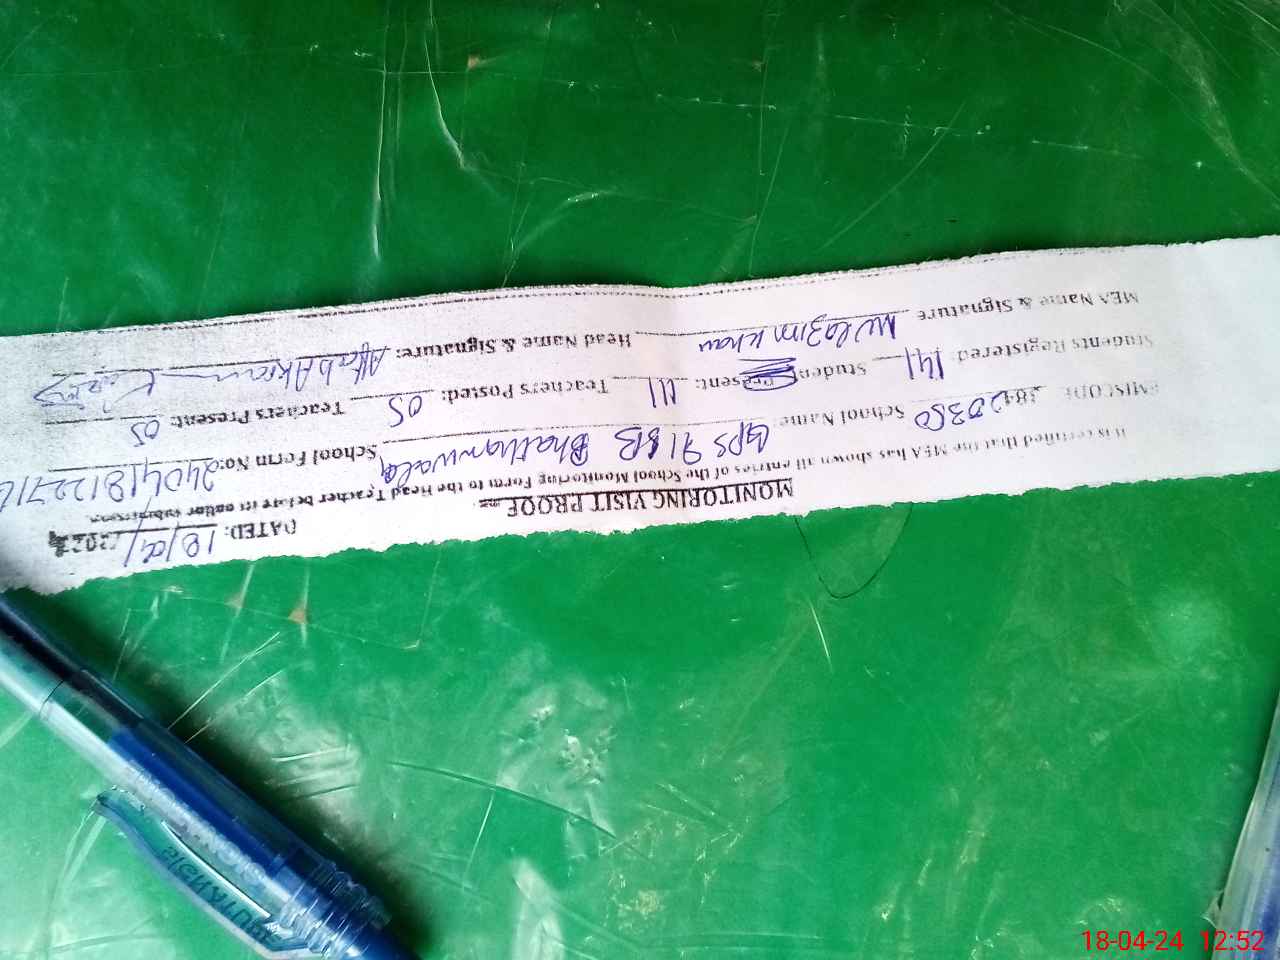 MONITORING VISIT PROOF
DATED: 18/04/2024
It is certified that the MEA has shown all entries of the School Monitoring Form to the Head Teacher before its online submission.
EMISCODE: 38420350 School Name: GPS 91 SB Bhathanwala School Form No: 240418122716
Students Registered: 141 Student Present: 111 Teachers Posted: 05 Teachers Present: 05
MEA Name & Signature Khan Head Name & Signature: Aftab Akram
18-04-24 12:52